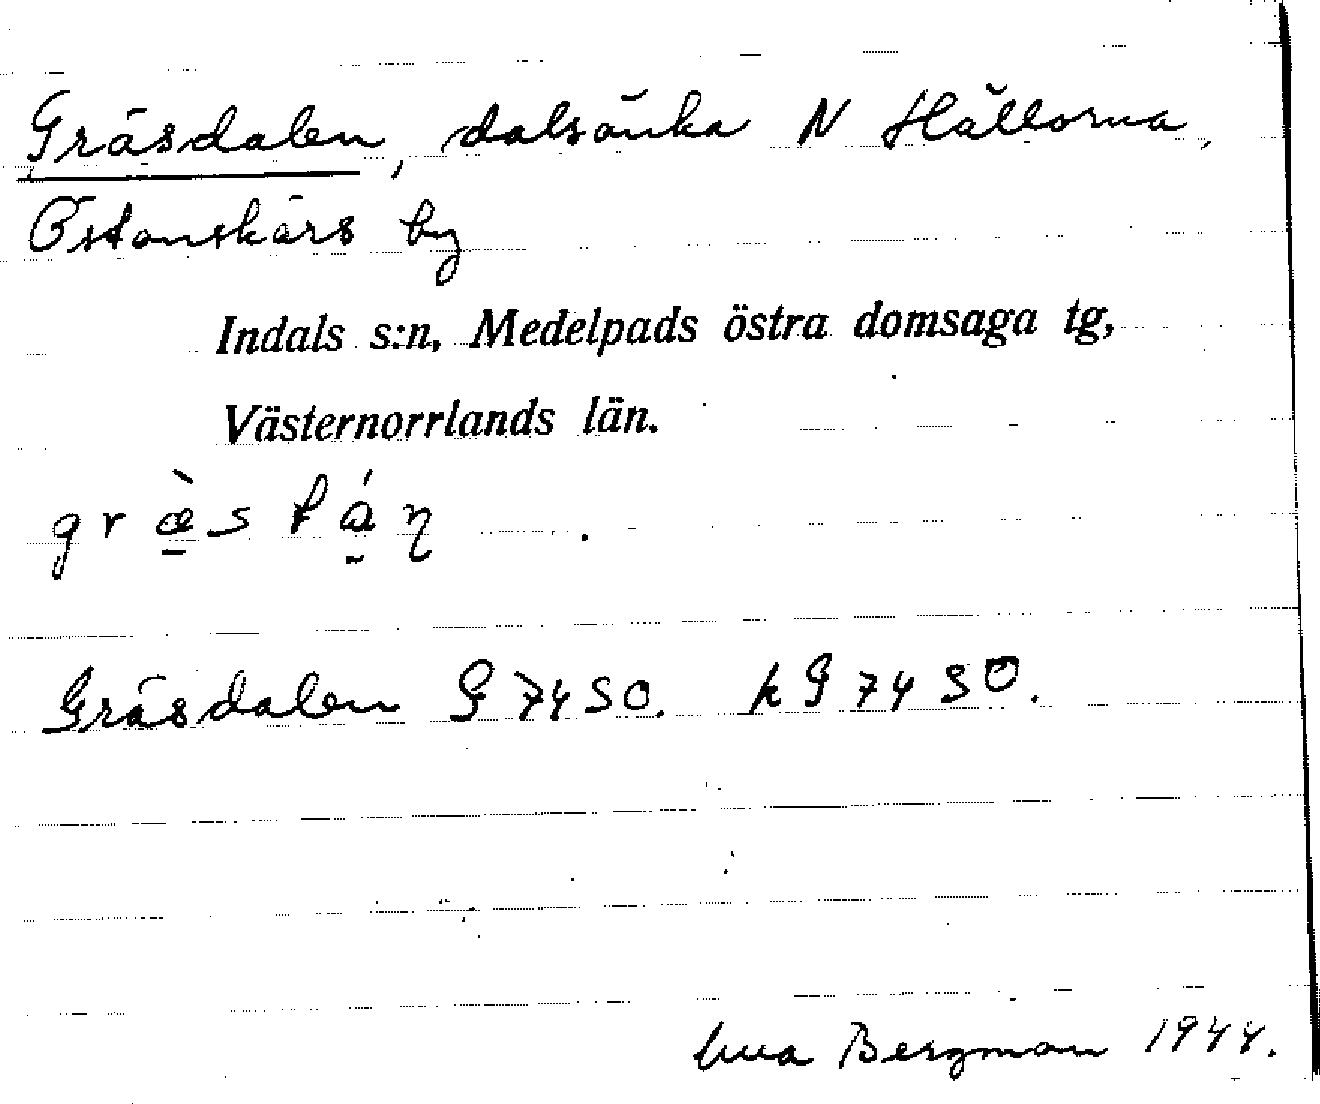 Gräsdalen, dalsänka N Hällorna,
Östanskärs by
Indals s:n, Medelpads östra domsaga tg,
Västernorrlands län.
Gräsdalen G 7450. kG 7450.
Bergman 1944.